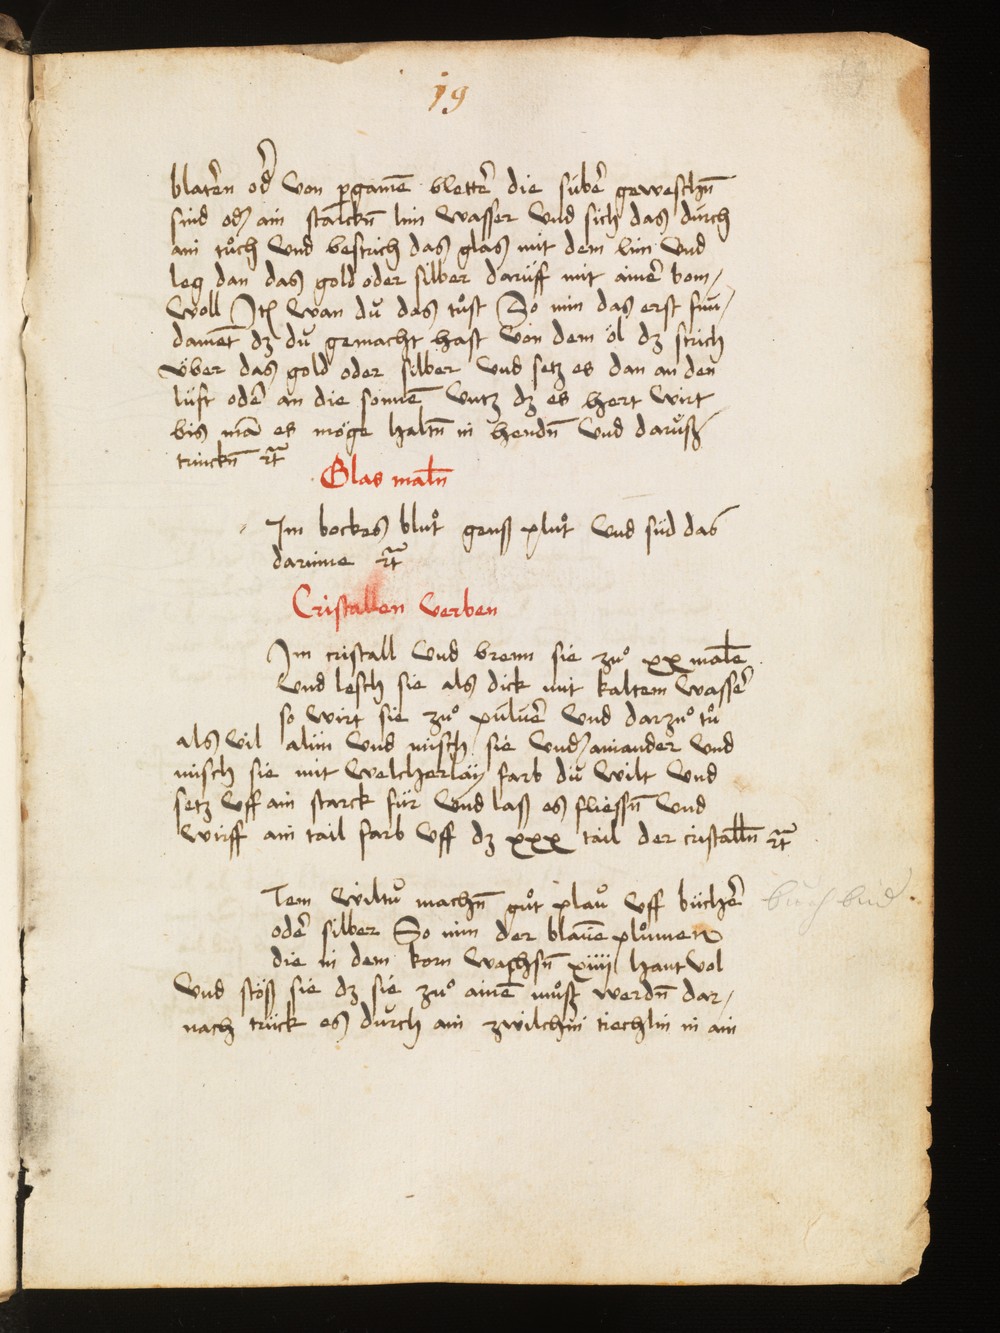 19
blater̄n od̄ von p̱gamē bletter̄ die suber̄ geweschn̄
sind oder ain starckn̄ lim wasser vnd sich das durch
ain tůch vnd bestrich das glas mit dem lim vnd
leg dan das gold oder silber daruff mit ainer̄ bom/
woll Itē wan du das tůst So nim das erst fun/
damēt dz du gemacht hast von dem öl dz strich
über das gold oder silber vnd setz es dan an den
luft oder̄ an die sonnē vntz dz es hert wirt
bis mā es möge haltn̄ in hendn̄ vnd darůß
trinckn̄ rc̄
Glas maln̄
Im bockes blůt genß plůt vnd süd das
darinne rc̄
Cristallen verben
Im cristall vnd brenn sie zů xx malē
vnd lesch sie als dick mit kaltem wasser̄
so wirt sie zů puluer̄ vnd darzů tů
als vil alun vnd misch sie vnder ainander vnd
misch sie mit welcherlay farb du wilt vnd
setz vff ain starck für vnd laß es fliessn̄ vnd
wirff ain tail farb vff dz xxx tail der cristalln̄ rc̄
Tem wiltu machn̄ gůt plau vff bücher̄
buch bind
oder̄ silber So nim der blauē plůmen
die in dem korn wachsn̄ xiiij hant vol
vnd stöß sie dz sie zů ainē můß werdn̄ dar/
nach truck es durch ain zwilchin tiechlin in ain